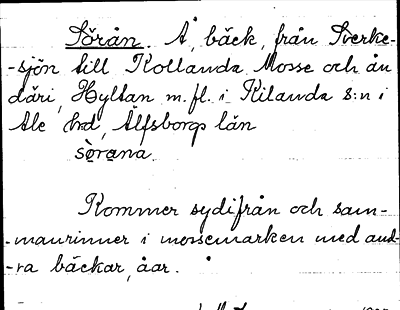 Sörån. Å, bäck, från Sverke-
-sjön till Kollanda Mosse och ån
däri, Hyltan m.fl. i Kilanda s:n i
Ale hd, Älfsborgs län
sörana.
Kommer sydifrån och sam-
-manrinner i mossemarken med and-
-ra bäckar, åar.